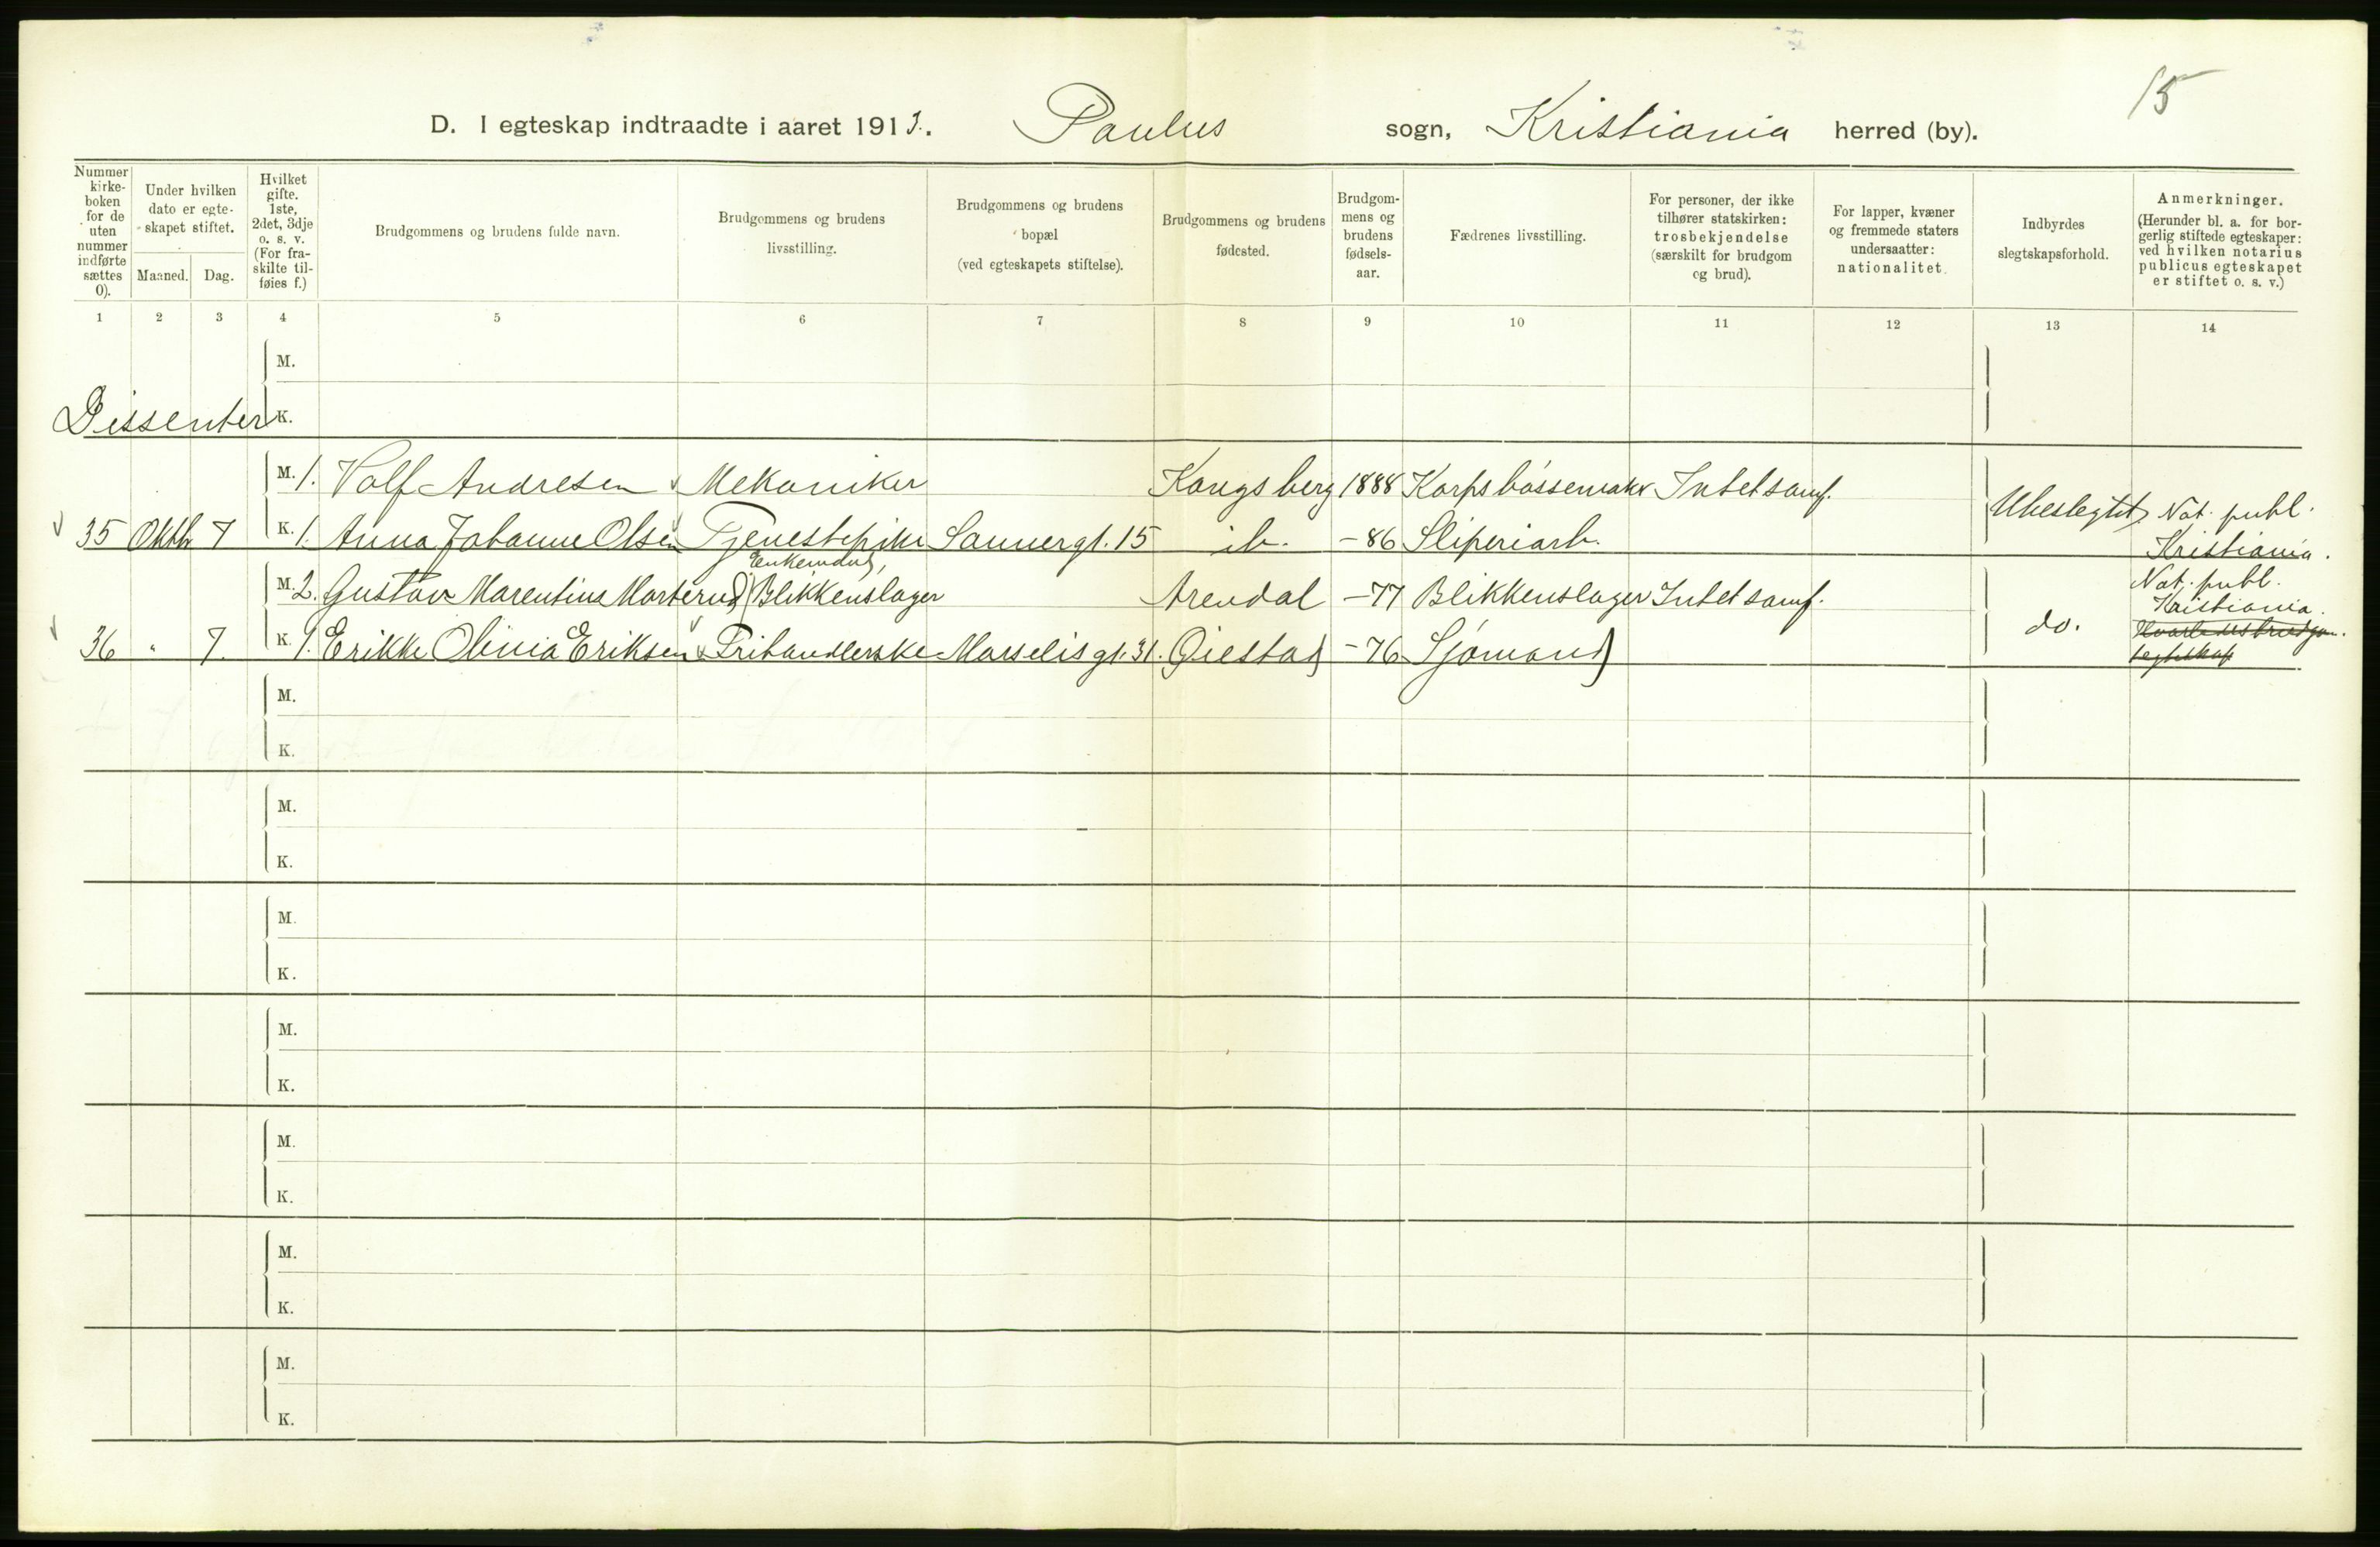 15
D. I egteskap indtraadte i aaret 1913. Paulus sogn, Kristiania herred (by).
Nummer kirke- boken for de uten nummer indførte sættes 0).
Under hvilken dato er egte- skapet stiftet.
Maaned. Dag.
Hvilket gifte. 1ste, 2det, 3dje o. s. v. (For fra- skilte til- føies f.)
Brudgommens og brudens fulde navn.
Brudgommens og brudens livsstilling.
Brudgommens og brudens bopæl (ved egteskapets stiftelse).
Brudgommens og brudens fødested.
Brudgom- mens og brudens fødsels- aar.
Fædrenes livsstilling.
For personer, der ikke tilhører statskirken: trosbekjendelse (særskilt for brudgom og brud).
For lapper, kvæner og fremmede staters undersaatter: nationalitet.
Indbyrdes slegtskapsforhold.
Anmerkninger. (Herunder bl. a. for bor- gerlig stiftede egteskaper: ved hvilken notarius publicus egteskapet er stiftet o. s. v.)
1 2 3 4 5 6 7 8 9 10 11 12 13 14
M.
Dissenter K.
M. 1. Volf Andresen Mekaniker Kongsberg 1888 Korpsbøssemaker Intet samf.
Ubeslegtet Not. publ.
35 Oktbr 7 K. 1. Anna Johanne Olsen Tjenestepike Sannergt. 15 ib. -86 Sliperiarb. Kristiania.
Enkemand,
M. 2. Gustav Marentius Morterud Blikkenslager Arendal -77 Blikkenslager Intet samf. Not. publ.
Kristiania.
do.
36 " 7. K. 1. Erikke Olivia Eriksen Frihandlerske Marselisgt. 31. Øiestad -76 Sjømand
M.
K.
M.
K.
M.
K.
M.
K.
M.
K.
M.
K.
M.
K.